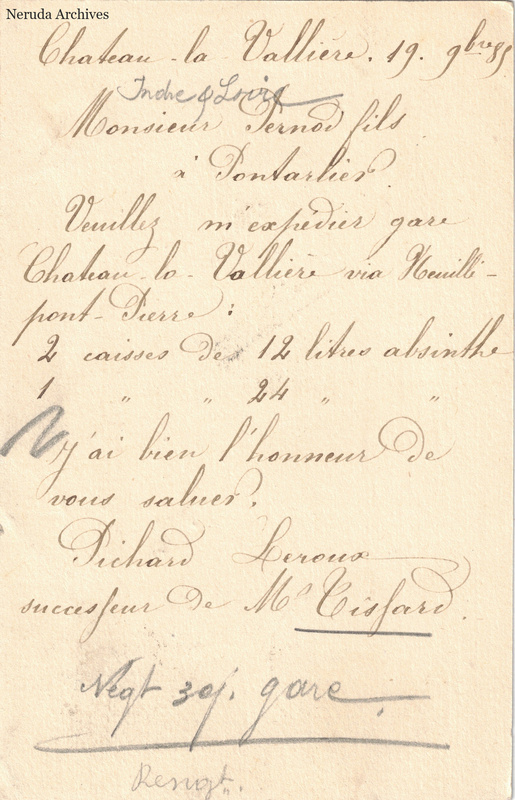 Neruda Archives
Chateau-la-Vallière. 19. 9bre 85
Indre & Loire
Monsieur Pernod fils
à Pontarlier
Veuillez m'expédier gare
Chateau-la-Vallière via Neuillé-
pont-Pierre :
2 caisses de 12 litres absinthe
1 " " 24 " "
J'ai bien l'honneur de
vous saluer.
Pichard Leroux
successeur de Mr Tissard.
Negt 30j. gare.
Rensgt.